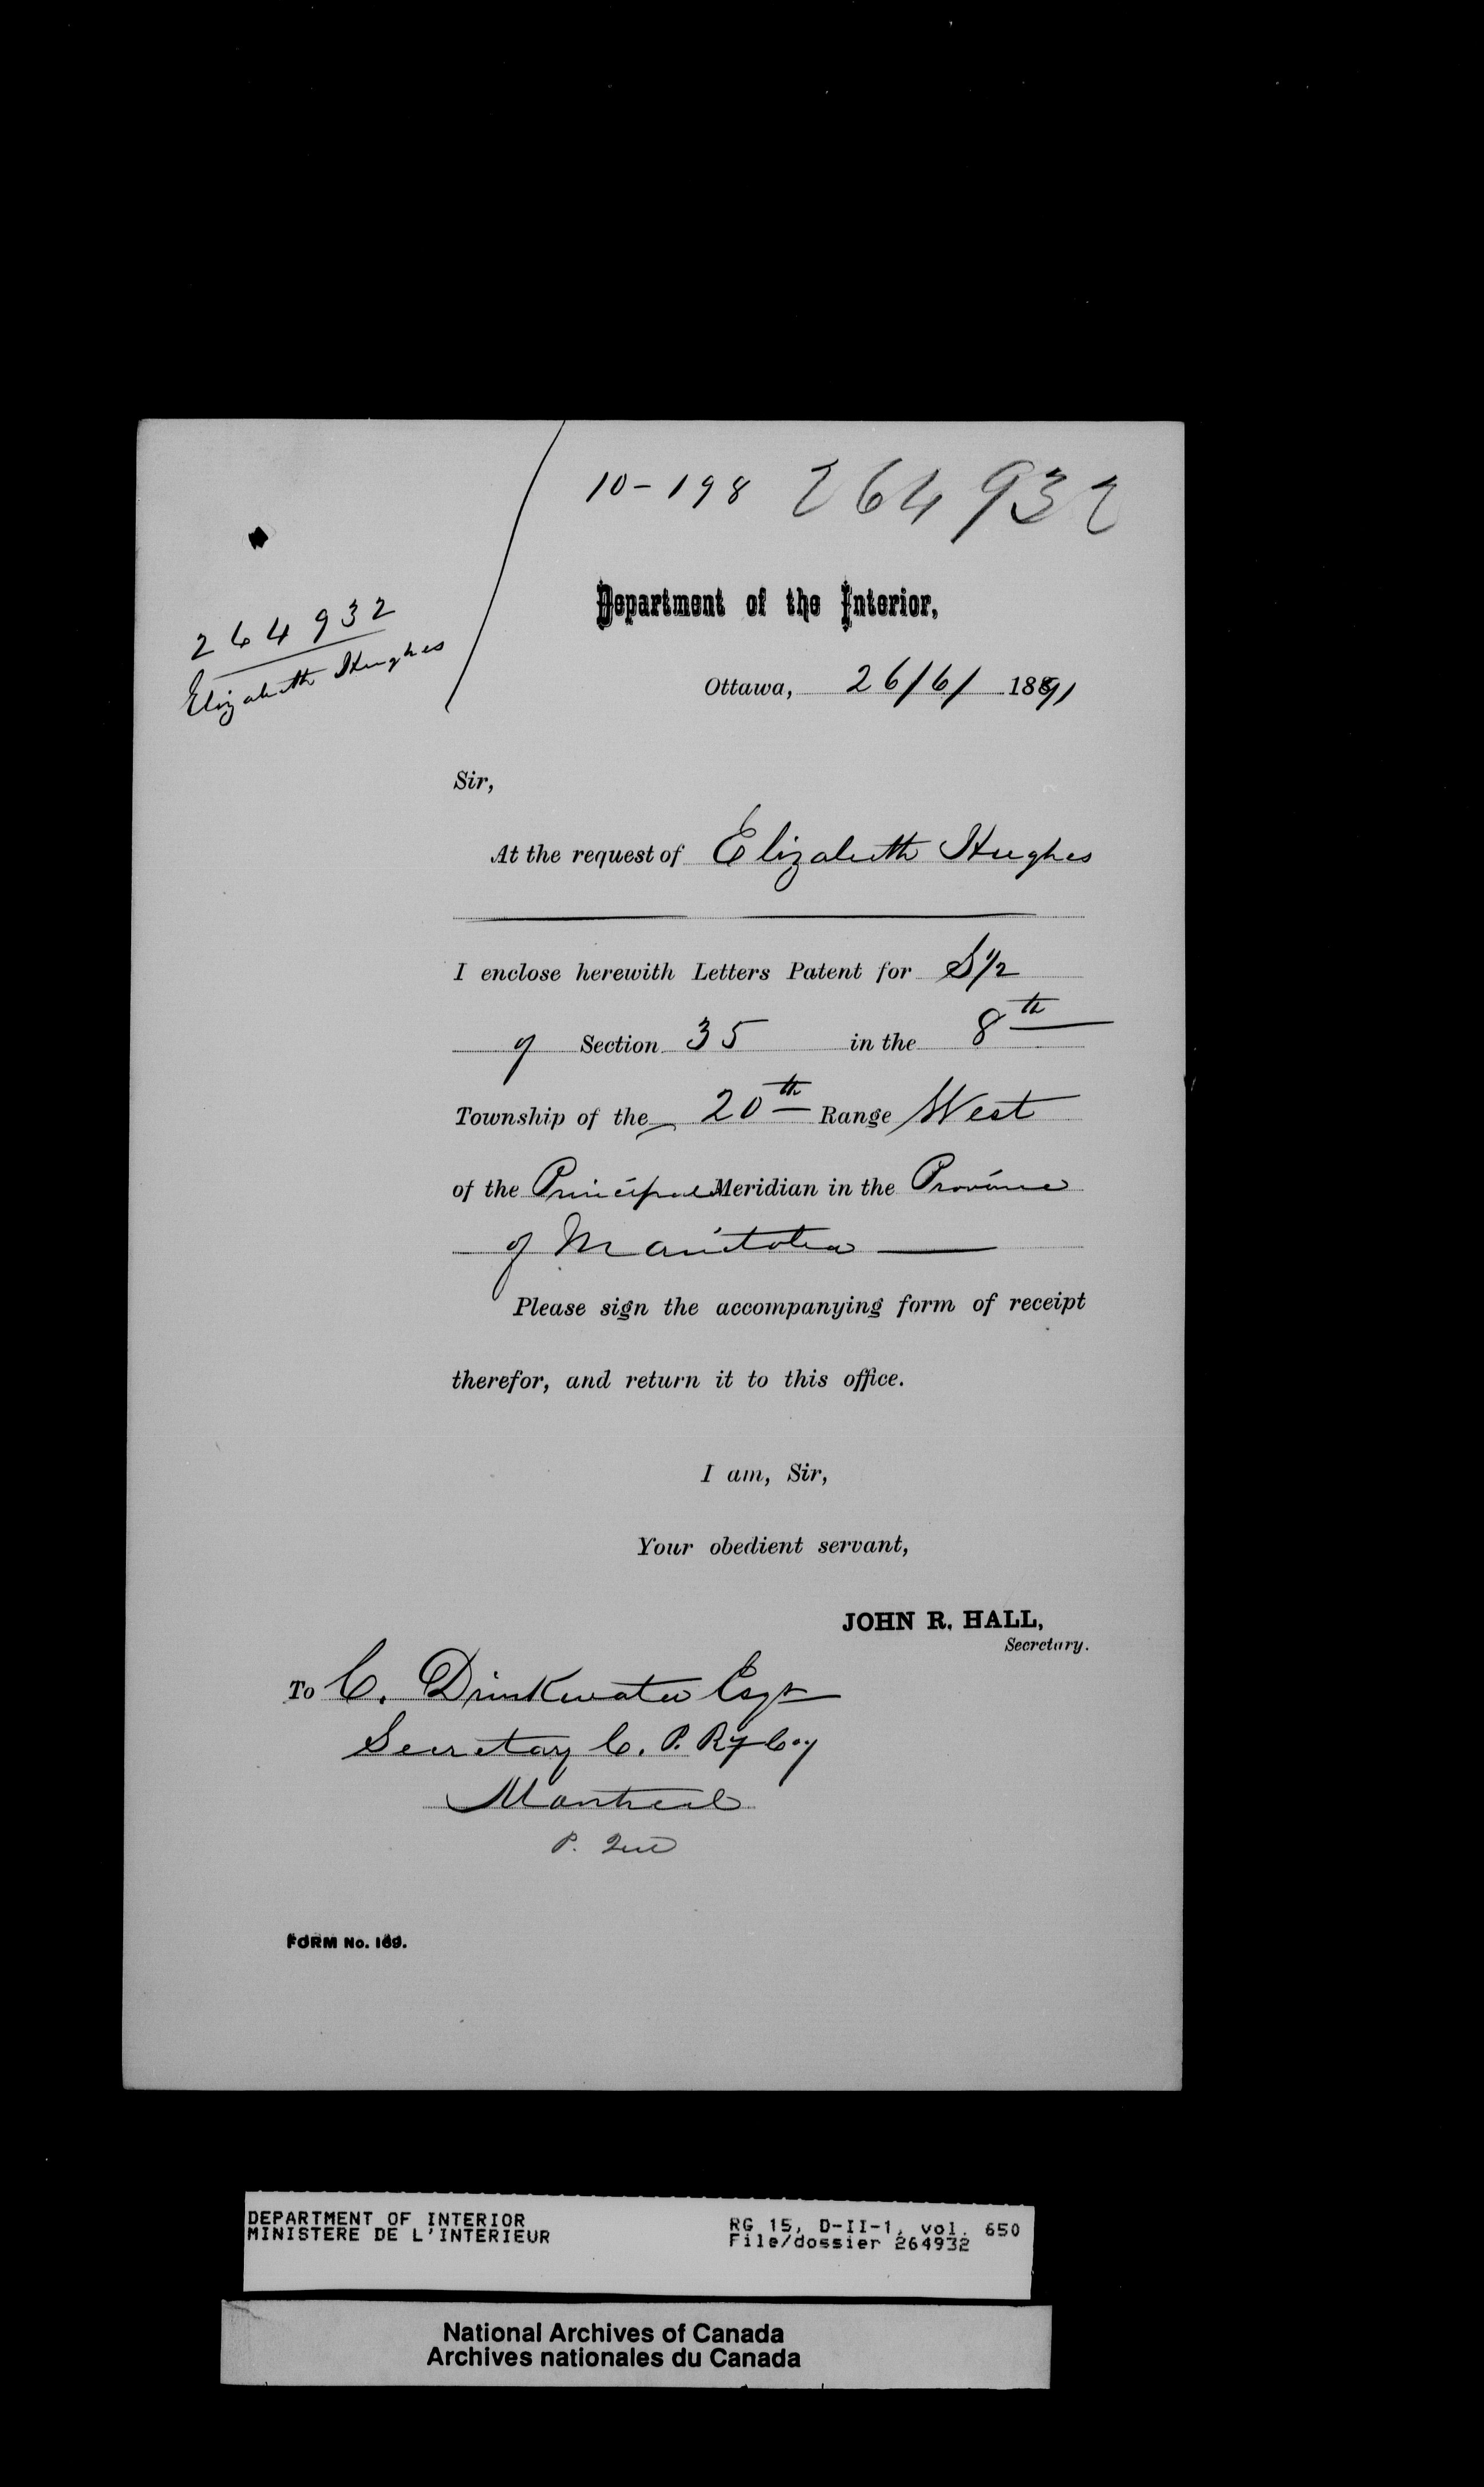 10-198 264932
264932
Elizabeth Hughes
Department of the Interior,
Ottawa, 26/6/ 1891
Sir,
At the request of Elizabeth Hughes
I enclose herewith Letters Patent for S 1/2
of Section 35 in the 8th
Township of the 20th Range West
of the Principal Meridian in the Province
of Manitoba
Please sign the accompanying form of receipt
therefor, and return it to this office.
I am, Sir,
Your obedient servant,
JOHN R. HALL,
Secretary.
To C. Drinkwater Esqr
Secretary C. P. Ry Coy
Montreal
P. Que
FORM No. 169.
DEPARTMENT OF INTERIOR RG 15, D-II-1, vol. 650
MINISTERE DE L'INTERIEUR File/dossier 264932
National Archives of Canada
Archives nationales du Canada